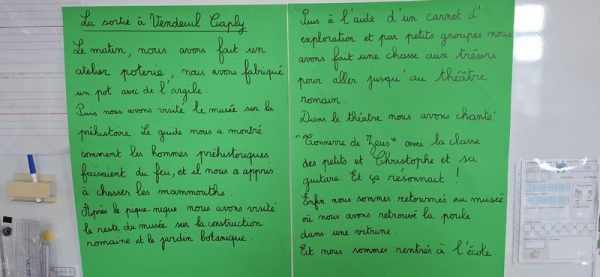 La sortie à Vendeuil Caply
Le matin, nous avons fait un
atelier poterie, nous avons fabriqué
un pot avec de l'argile.
Puis nous avons visité le musée sur la
préhistoire. Le guide nous a montré
comment les hommes préhistoriques
faisaient du feu, et il nous a appris
à chasser les mammouths.
Après le pique-nique nous avons visité
le reste du musée sur la construction
romaine et le jardin botanique.
Puis à l'aide d'un carnet d'
exploration et par petits groupes nous
avons fait une chasse aux trésors
pour aller jusqu'au théâtre
romain.
Dans le théâtre nous avons chanté
"Tonnerre de Zeus" avec la classe
des petits et Christophe et sa
guitare. Et ça résonnait !
Enfin nous sommes retournés au musée
où nous avons retrouvé la poule
dans une vitrine.
Et nous sommes rentrés à l'école